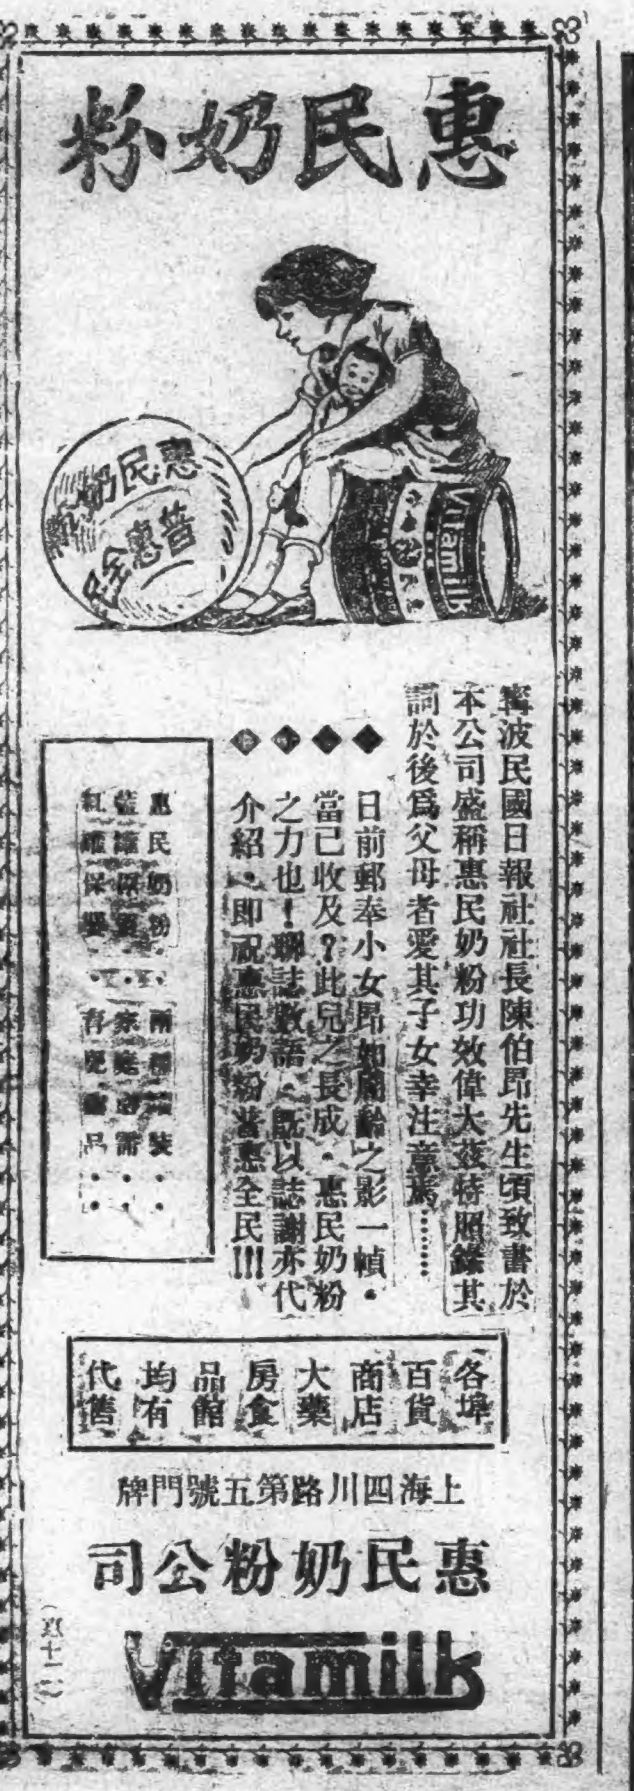 惠民奶粉
惠民奶粉
普惠全民
Vitamilk
寗波民國日報社社長陳伯昂先生頃致書於
本公司盛稱惠民奶粉功效偉大茲特照錄其
詞於後爲父母者愛其子女幸注意焉………
日前郵奉小女昂如周齡之影一幀・
當已收及?此兒之長成・惠民奶粉
之力也!聊誌數語・既以誌謝亦代
介紹・即祝惠民奶粉普惠全民!!!
惠民奶粉・・兩種罐裝・・
藍罐保家・・家庭必需・・
紅罐保嬰・・育兒聖品・・
各埠百貨商店大藥房食品館均有代售
上海四川路第五號門牌
惠民奶粉公司
Vitamilk